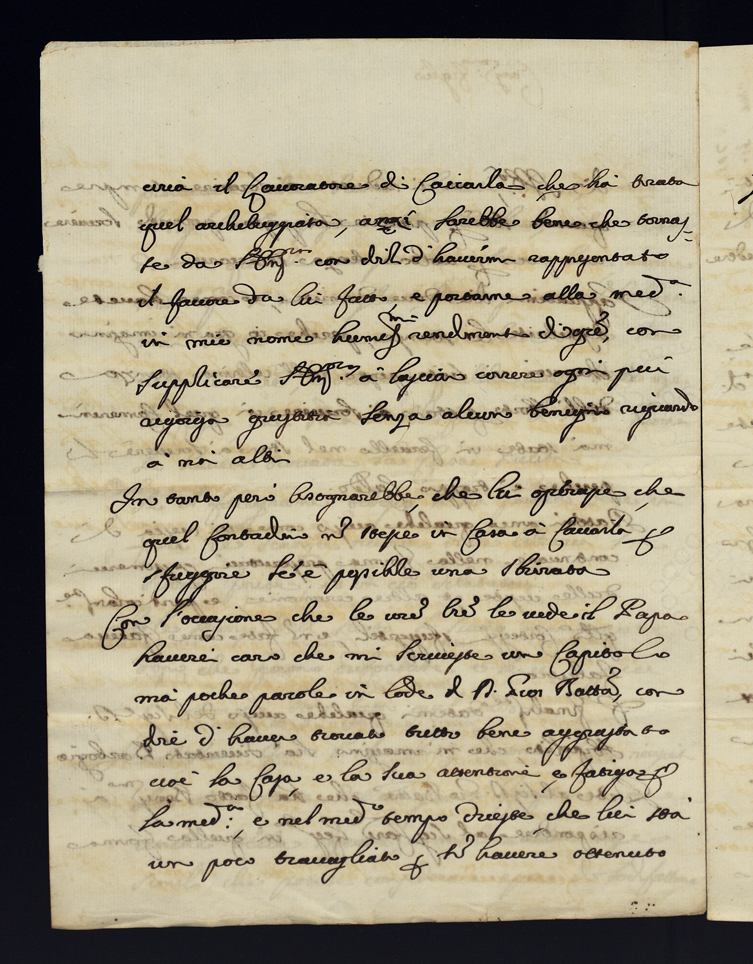 curia il Lavoratore di Caccarla, che hà tirato
quel archebuggiata, anzi sarebbe bene che tornas=
te da con dirli d'havermi rappresentato
il favore da lui fatto, e portarne alla med.ª
in mio nome humiss.mi rendimenti di gr̃e, con
supplicare à lasciar correre ogni più
rigorosa giustitia senza alcun benigno riguardo
à noi altri
In tanto però bisognarebbe, che lui oprasse, che
quel Contadin nõ stesse in Casa à Caccarla
sfuggire se è possibile una sbirrata
Con l'occasione che le vr̃e lr̃e le vede il Papa
haverei caro che mi scriveste un Capitolo
mà poche parole in lode d D. Gior Batt̃a, con
dire d'haver trovato tutto bene aggiustato
cioè la Casa, e la sua attentione, e fatiga
la med.ª, e nel med.º tempo diceste, che lui stà
un poco travagliato nõ havere ottenuto